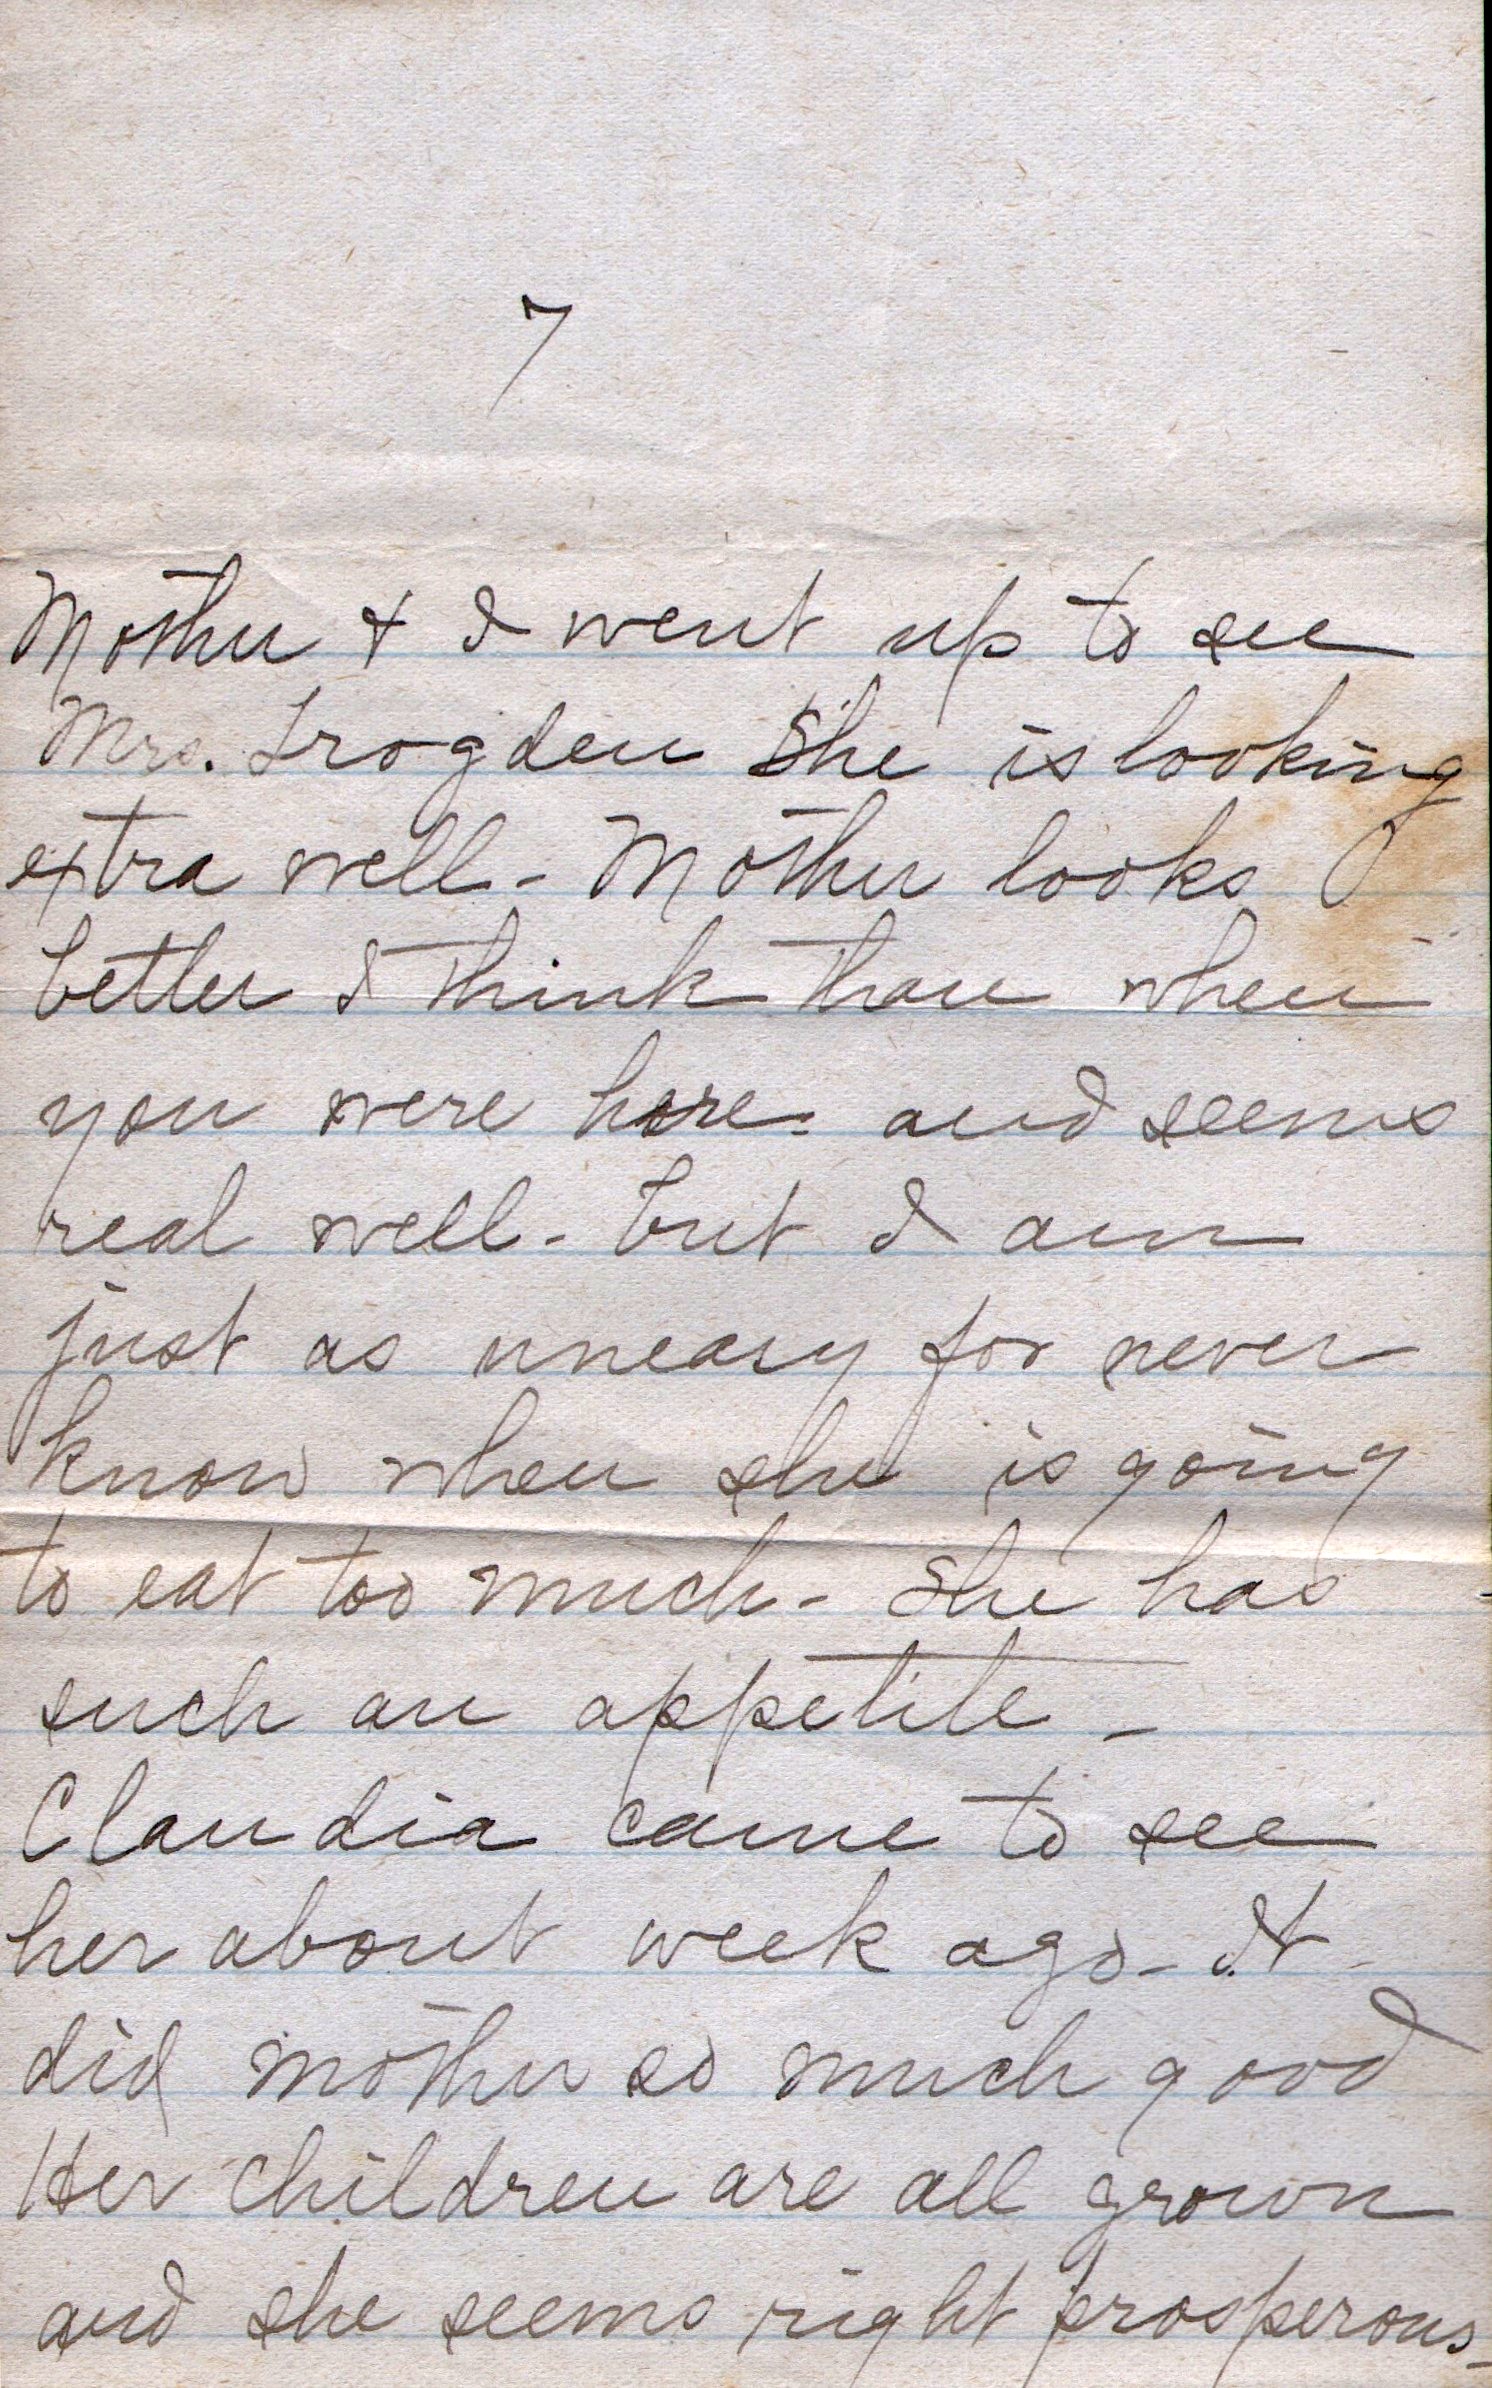 7
Mother + I went up to see
Mrs. Trogden She is looking
extra well - Mother looks
better I think than when
you were here - and seems
real well - but I am
just as uneasy for never
know when she is going
to eat too much - She has
such an appetite -
Claudia came to see
her about week ago - It
did mother so much good
Her children are all grown
and she seems right prosperous -